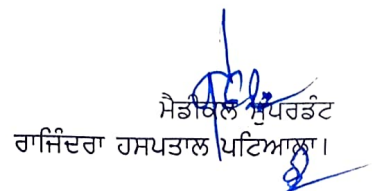 ਮੈਡੀਕਲ ਸੁੱਪਰਡੰਟ
ਰਾਜਿੰਦਰਾ ਹਸਪਤਾਲ ਪਟਿਆਲਾ।